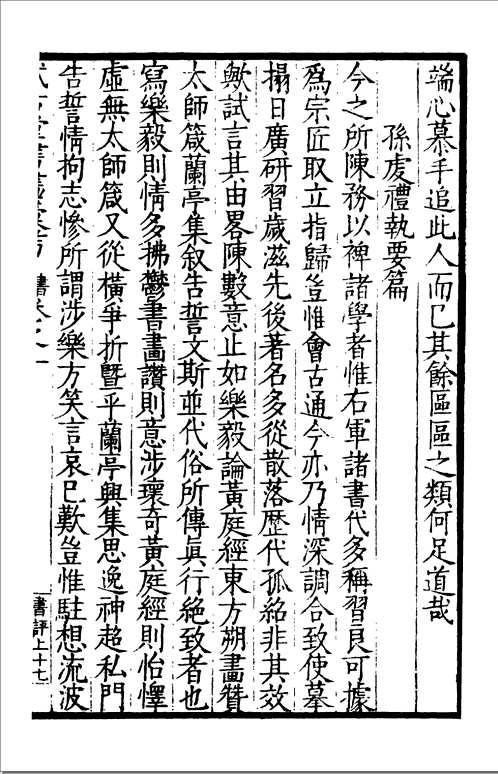 端心慕手追此人而已其餘區區之類何足道哉
孫虔禮執要篇
今之所陳務以裨諸學者惟右軍諸書代多稱習良可據
爲宗匠取立指歸豈惟會古通今亦乃情深調合致使摹
搨日廣研習歲滋先後著名多從散落歷代孤紹非其效
歟試言其由畧陳數意止如樂毅論黃庭經東方朔畫贊
太師箴蘭亭集叙告誓文斯並代俗所傳真行絶致者也
寫樂毅則情多拂鬱書畫讚則意涉瓌奇黃庭經則怡懌
虛無太師箴又從横爭折暨乎蘭亭興集思逸神超私門
告誓情拘志慘所謂涉樂方笑言哀已歎豈惟駐想流波
書評上十七